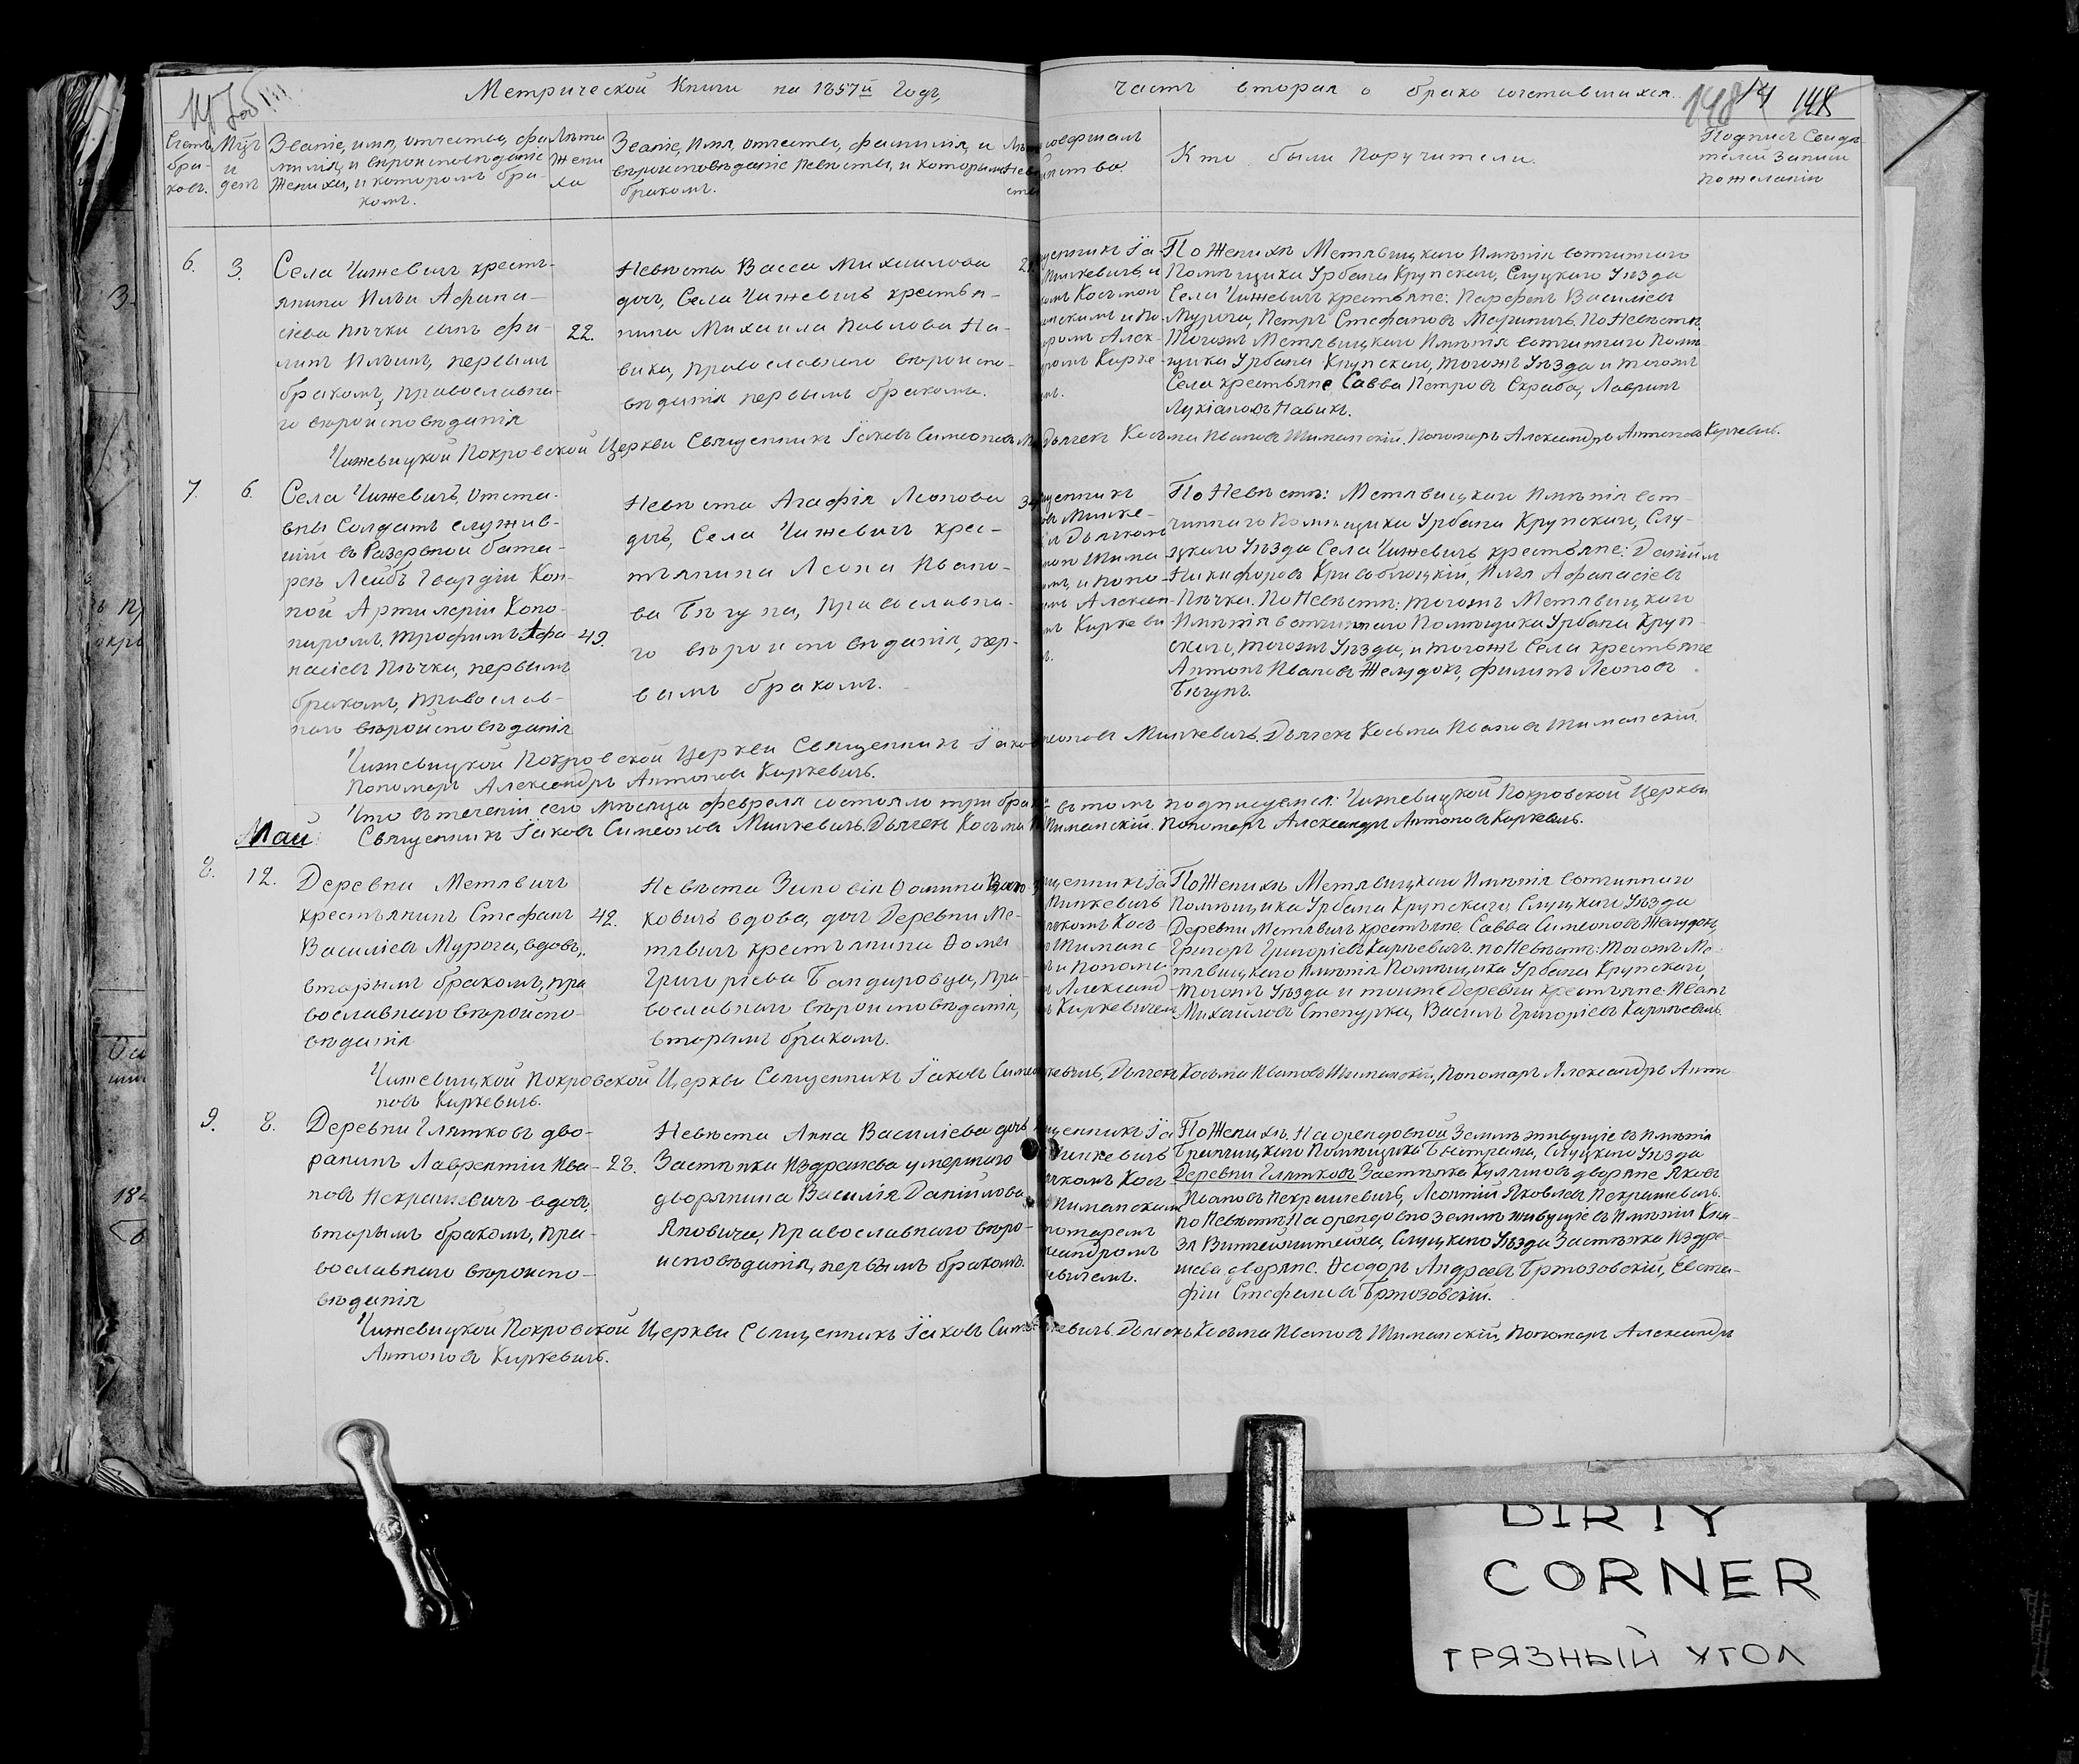 Метрической Книги на 1857й Годъ,
часть вторая о брако сочетавшихся.
148 14 148
Счетъ бра- ковъ.
Мцъ и день
Званіе, имя, отчество, фа-
милія, и вѣроисповѣданіе
Жениха, и которымъ бра-
комъ.
Лѣта Жени ха
Званіе, Имя, отчество, фамилія, и
вѣроисповѣданіе Невѣсты, и которымъ
бракомъ.
Кто были Поручители.
Подпись Свидѣ-
телей Записи
по желанію
6. 3.
Села Чижевичъ кресть-
янина Ильи Афана-
сіева Пячки сынъ Фи-
липъ Ильинъ, первымъ
бракомъ, православна-
го вѣроисповѣданія
22.
Невѣста Васса Михайлова
дочь, Села Чижевичъ крестья-
нина Михаила Павлова На-
вика, православнаго вѣроиспо-
вѣданія первымъ бракомъ.
щенникъ Іа-
Минкевичъ и
комъ Косьмою
манскимъ и По
Алек-
дромъ Кирке
По Женихѣ Метявицкаго Имѣнія вотчиннаго
Помѣщика Урбана Крупскаго, Слуцкаго Уѣзда
Села Чижевичъ крестьяне: Парфенъ Василіевъ
Мурога, Петръ Стефановъ Мариничъ. По Невѣстѣ,
Тогожъ Метявицкаго Имѣнія вотчиннаго Помѣ-
щика Урбана Крупскаго, тогожъ Уѣзда и тогожъ
Села крестьяне, Савва Петровъ Скраба, Лавринъ
Лукіановъ Навикъ.
Чижевицкой Покровской Церкви Священникъ Іаковъ Симеоновъ
Дьячекъ Косьма Ивановъ Шиманскій. Пономарь Александръ Антоновъ Киркевичъ.
7. 6.
Села Чижевичъ, Отста-
вны Солдатъ служив-
шій въ Резервной бата-
рей Лейбъ Гвардіи Кон-
ной Артилеріи Коно-
ниромъ. Трофимъ Афа-
насіевъ Пячка, первымъ
бракомъ, православ-
наго вѣроисповѣданія
49.
Невѣста Агафія Леонова
дочь, Села Чижевичъ крес-
тьянина Леона Ивано-
ва Бѣгуна, Православна-
го вѣроисповѣданія, пер-
вымъ бракомъ.
щенникъ
Минке-
Дьячкомъ
Шима
и Поно-
Алексан
Киркеви
По Невѣстѣ: Метявицкаго Имѣнія вот-
чиннаго Помѣщика Урбана Крупскаго, Слу-
цкаго Уѣзда Села Чижевичъ крестьяне: Даніилъ
Никифоровъ Кривоблоцкій, Илья Афанасіевъ
Пячка. По Невѣстѣ: тогожъ Метявицкаго
Имѣнія вотчиннаго Помѣщика Урбана Круп-
скаго, тогожъ Уѣзда, и тогожъ Села крестьяне
Антонъ Ивановъ Желудокъ, Филипъ Леоновъ
Бѣгунъ.
Чижевицкой Покровской Церкви Священникъ Іаковъ
Минкевичъ. Дьячекъ Косьма Ивановъ Шиманскій.
Пономарь Александръ Антоновъ Киркевичъ.
Что въ теченіи сего Мѣсяца февраля состояло три брака
въ томъ подписуемся: Чижевицкой Покровской Церкви
Священникъ Іаковъ Симеоновъ Минкевичъ. Дьячекъ Косьма
Шиманскій. Пономарь Александръ Антоновъ Киркевичъ.
Май
8. 12.
Деревни Метявичъ
крестьянинъ Стефанъ
Василіевъ Мурога, вдовъ,
вторымъ бракомъ, пра
вославнаго вѣроиспо-
вѣданія
42.
Невѣста Зиновія Фомина
ковичъ вдова, дочь Деревни Ме-
тявичъ крестьянина Фомы
Григоріева Бандаровца, пра-
вославнаго вѣроисповѣданія,
вторымъ бракомъ.
щенникъ Іа
Минкевичъ
чкомъ Кось
Шиманс
и Понома
Александ
Киркевичемъ
По Женихѣ Метявицкаго Имѣнія вотчиннаго
Помѣщика Урбана Крупскаго, Слуцкаго Уѣзда
Деревни Метявичъ крестьяне, Савва Симеоновъ Желудокъ,
Григорь Григоріевъ Карпѣевичъ. по Невѣстѣ: тогожъ Ме-
тявицкаго Имѣнія Помѣщика Урбана Крупскаго,
тогожъ Уѣзда и тойже Деревни крестьяне: Иванъ
Михайловъ Степурка, Василь Григоріевъ Карпѣевичъ.
Чижевицкой Покровской Церкви Священникъ Іаковъ
Дьячекъ Косьма Ивановъ Шиманскій, Пономарь Александръ Анто
новъ Киркевичъ.
9. 8.
Деревни Глятковъ дво-
рянинъ Лаврентій Ива-
новъ Некрашевичъ вдовъ,
вторымъ бракомъ, Пра-
вославнаго вѣроиспо-
вѣданія
28.
Невѣста Анна Василіева дочь
Застѣнка Издрашева умершаго
дворянина Василія Даніилова
Яновича, Православнаго вѣро-
исповѣданія, первымъ бракомъ.
щенникъ Іа
Минкевичъ
чкомъ Кось
Шиманскимъ
номаремъ
ксандромъ
кевичемъ.
По Женихѣ, На орендовной Землѣ живущіе въ Имѣніи
Помѣщика Быстрама, Слуцкаго Уѣзда
Деревни Глятковъ Застѣнка Кулаковъ дворяне Яковъ
Ивановъ Некрашевичъ, Леонтій Яковлевъ Некрашевичъ.
по Невѣстѣ: На орендовно Землѣ живущіе въ Имѣніи Кня-
зя Витгейнштейна, Слуцкаго Уѣзда Застѣнка Издре-
шева дворяне. Феодоръ Андреевъ Бржозовскій, Евста-
фій Стефановъ Бржозовскій.
Чижевицкой Покровской Церкви Священникъ Іаковъ
кевичъ. Дьячекъ Косьма Ивановъ Шиманскій, Пономарь Александръ
Антоновъ Киркевичъ.
DIRTY
CORNER
ГРЯЗНЫЙ УГОЛ